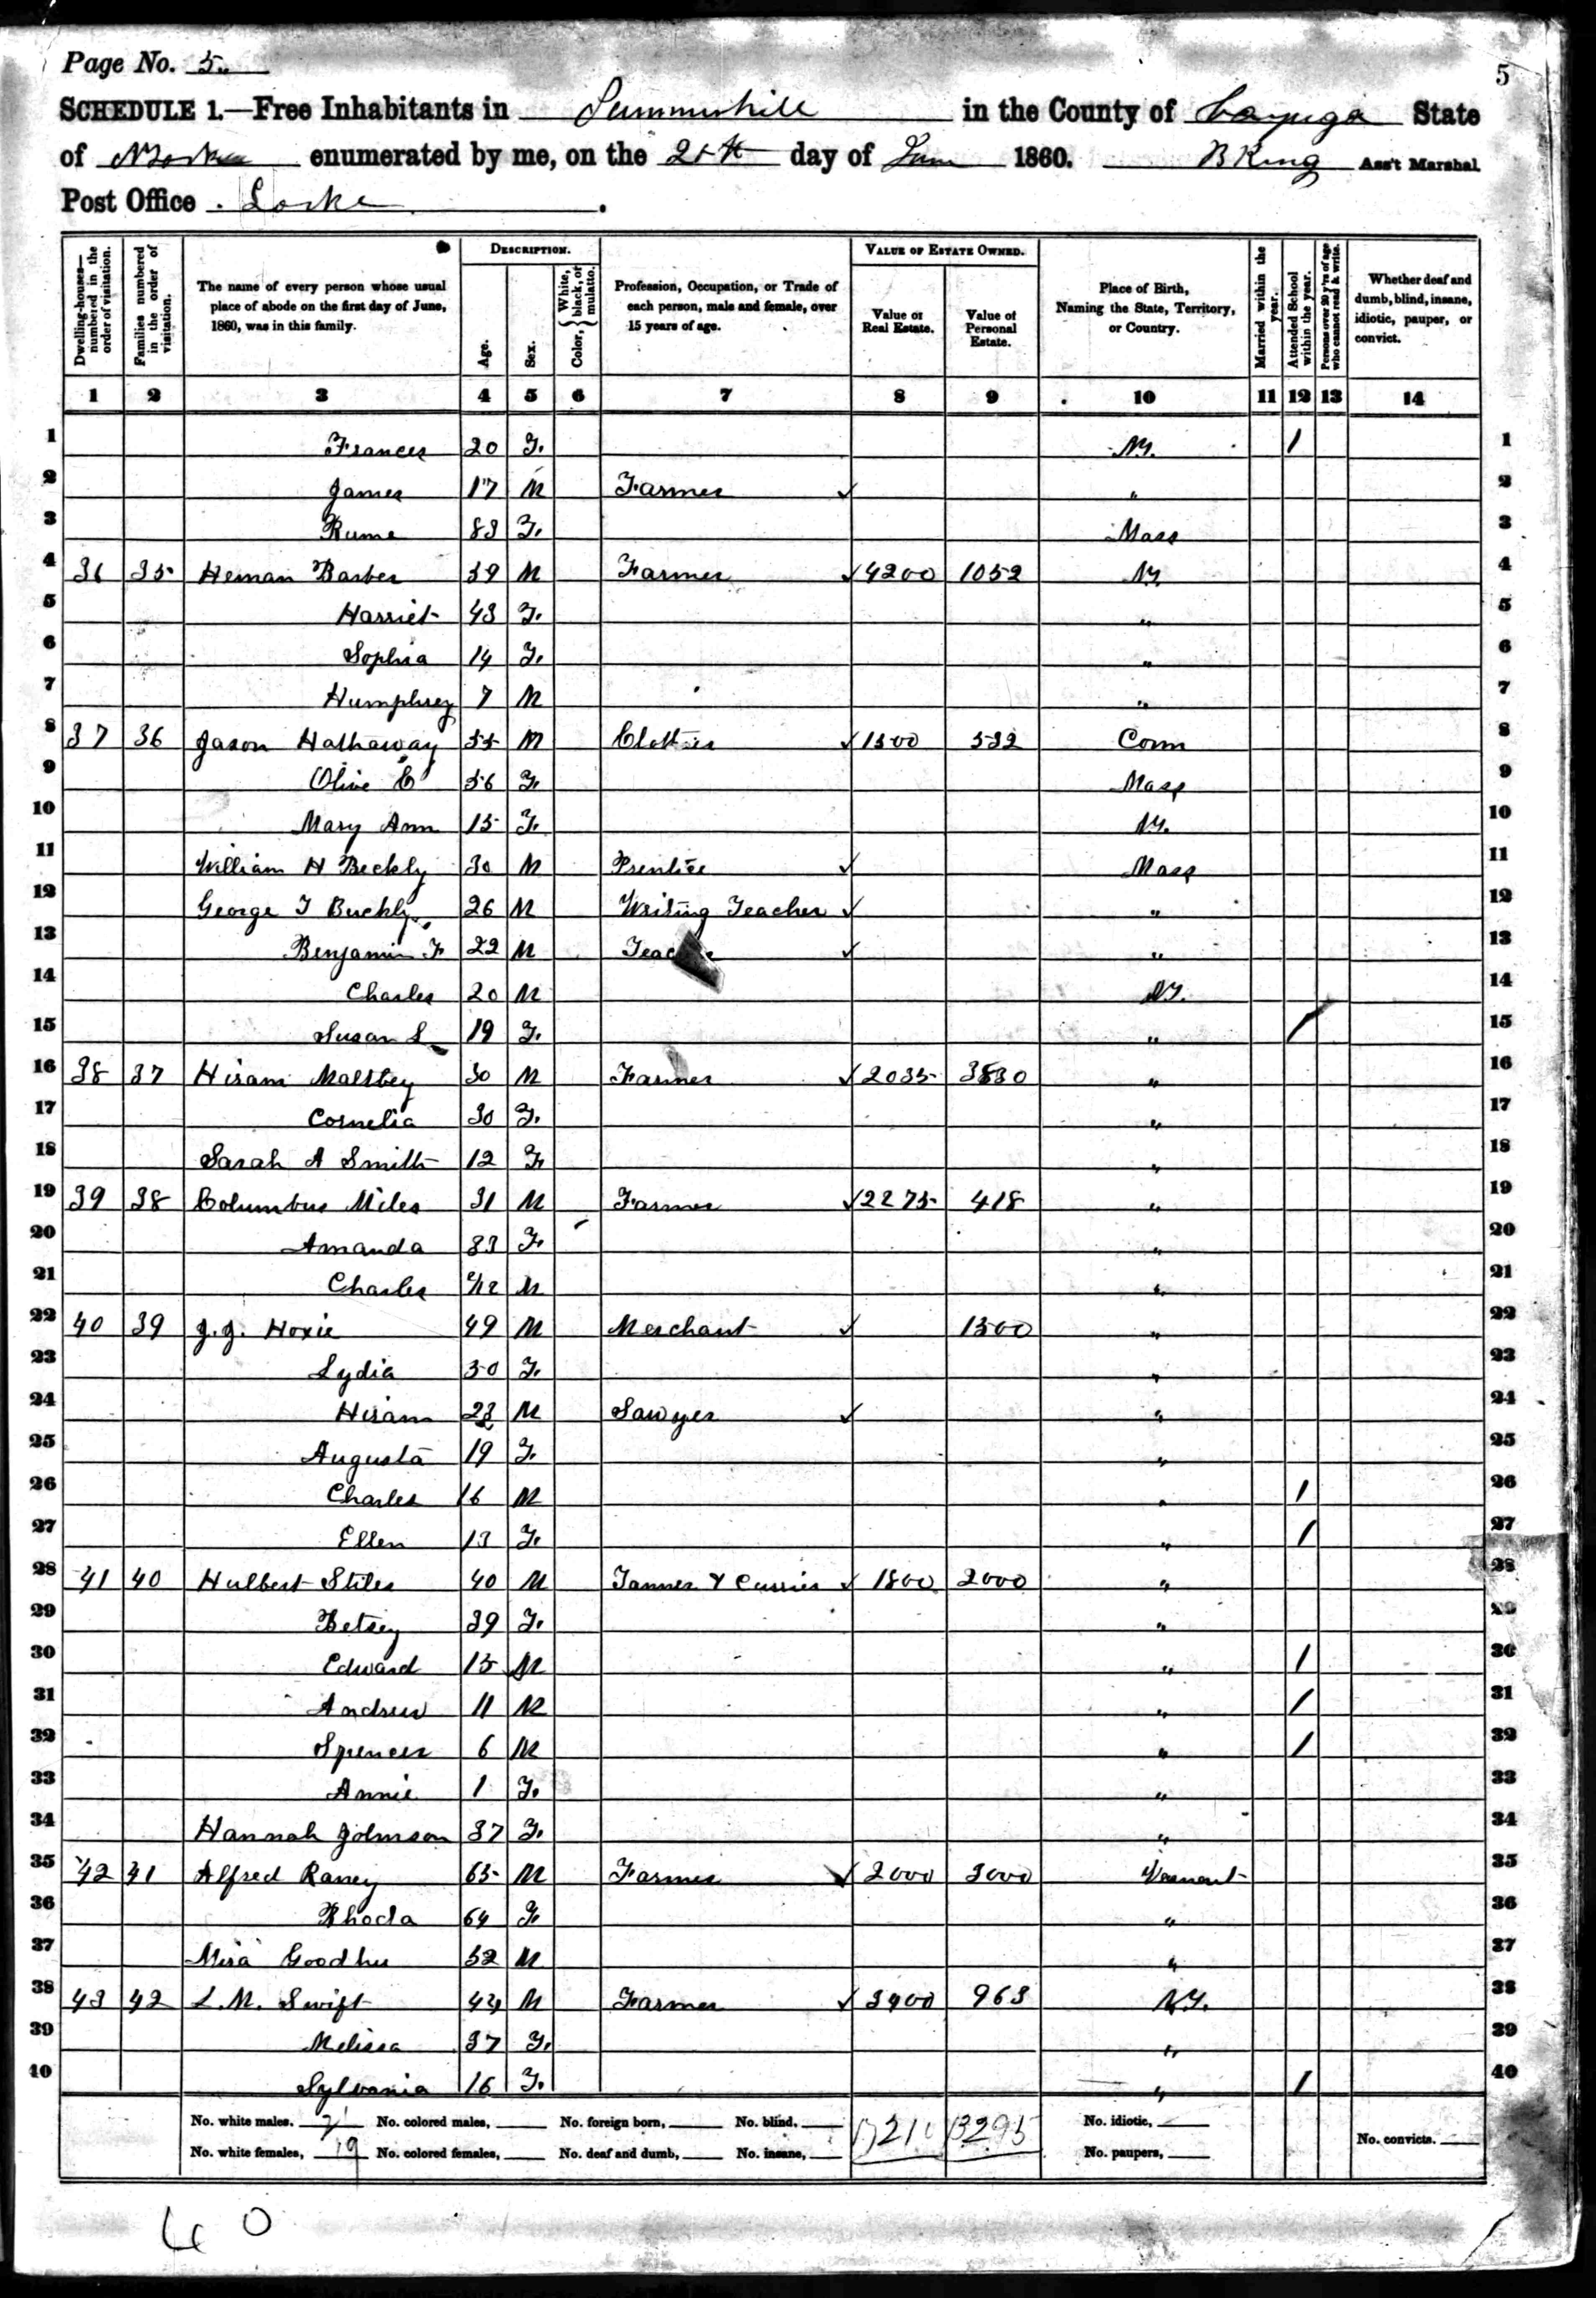 Page No. 5.
5
SCHEDULE 1.—Free Inhabitants in Summerhill in the County of Cayuga State
of N York enumerated by me, on the 25th day of June 1860. B King Ass't Marshal
Post Office Locke
Dwelling-houses—numbered in the order of visitation. Families numbered in the order of visitation. The name of every person whose usual place of abode on the first day of June, 1860, was in this family. DESCRIPTION. Age. Sex. Color, White, black, or mulatto. Profession, Occupation, or Trade of each person, male and female, over 15 years of age. VALUE OF ESTATE OWNED. Value of Real Estate. Value of Personal Estate. Place of Birth, Naming the State, Territory, or Country. Married within the year. Attended School within the year. Persons over 20 y'rs of age who cannot read & write. Whether deaf and dumb, blind, insane, idiotic, pauper, or convict.
1 2 3 4 5 6 7 8 9 10 11 12 13 14
1 Frances 20 F. NY. / 1
2 James 17 M Farmer ✓ " 2
3 83 F. Mass 3
4 36 35 Heman Barber 39 M Farmer ✓ 4200 1052 NY 4
5 Harriet 43 F. " 5
6 Sophia 14 F. " 6
7 Humphrey 7 M " 7
8 37 36 Jason Hathaway 55 M Clothier ✓ 1500 532 Conn 8
9 Olive E 56 F. Mass 9
10 Mary Ann 15 F. NY. 10
11 William H Beckly 30 M Prentice ✓ Mass 11
12 George T Buckly 26 M Writing Teacher ✓ " 12
13 Benjamin F 22 M Teacher ✓ " 13
14 Charles 20 M NY. 14
15 Susan L 19 F. " / 15
16 38 37 Hiram Maltbey 30 M Farmer ✓ 2035 3830 " 16
17 Cornelia 30 F. " 17
18 Sarah A Smith 12 F " 18
19 39 38 Columbus Miles 31 M Farmer ✓ 2275 418 " 19
20 Amanda 33 F. " 20
21 Charles M " 21
22 40 39 J. J. Hoxie 49 M Merchant ✓ 1500 " 22
23 Lydia 50 F. " 23
24 Hiram 23 M Sawyer ✓ " 24
25 Augusta 19 F. " 25
26 Charles 16 M " / 26
27 Ellen 13 F. " / 27
28 41 40 Hulbert Stiles 40 M Tanner & Currier ✓ 1800 2000 " 28
29 Betsey 39 F. " 29
30 Edward 15 M " / 30
31 Andrew 11 M " / 31
32 Spencer 6 M " / 32
33 Annie 1 F. " 33
34 Hannah Johnson 37 F. " 34
35 42 41 Alfred Raney 65 M Farmer ✓ 2000 3000 Vermont 35
36 Rhoda 64 F " 36
37 Mira Goodhu 52 M " 37
38 43 42 L. M. Swift 44 M Farmer ✓ 3400 963 N.Y. 38
39 Melissa 37 F. " 39
40 Sylvania 16 F. " / 40
No. white males, 21 No. colored males, No. foreign born, No. blind, 17210 13295 No. idiotic,
No. white females, 19 No. colored females, No. deaf and dumb, No. insane, No. paupers, No. convicts.
40